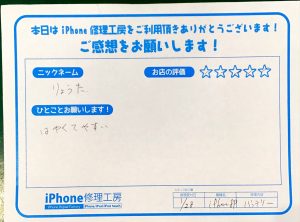 本日は iPhone 修理工房をご利用頂きありがとうございます!
ご感想をお願いします!
ニックネーム
りょうた
お店の評価 ☆☆☆☆☆
ひとことお願いします!
はやくてやすい
iPhone修理工房
1/28 iPhone8 バッテリー